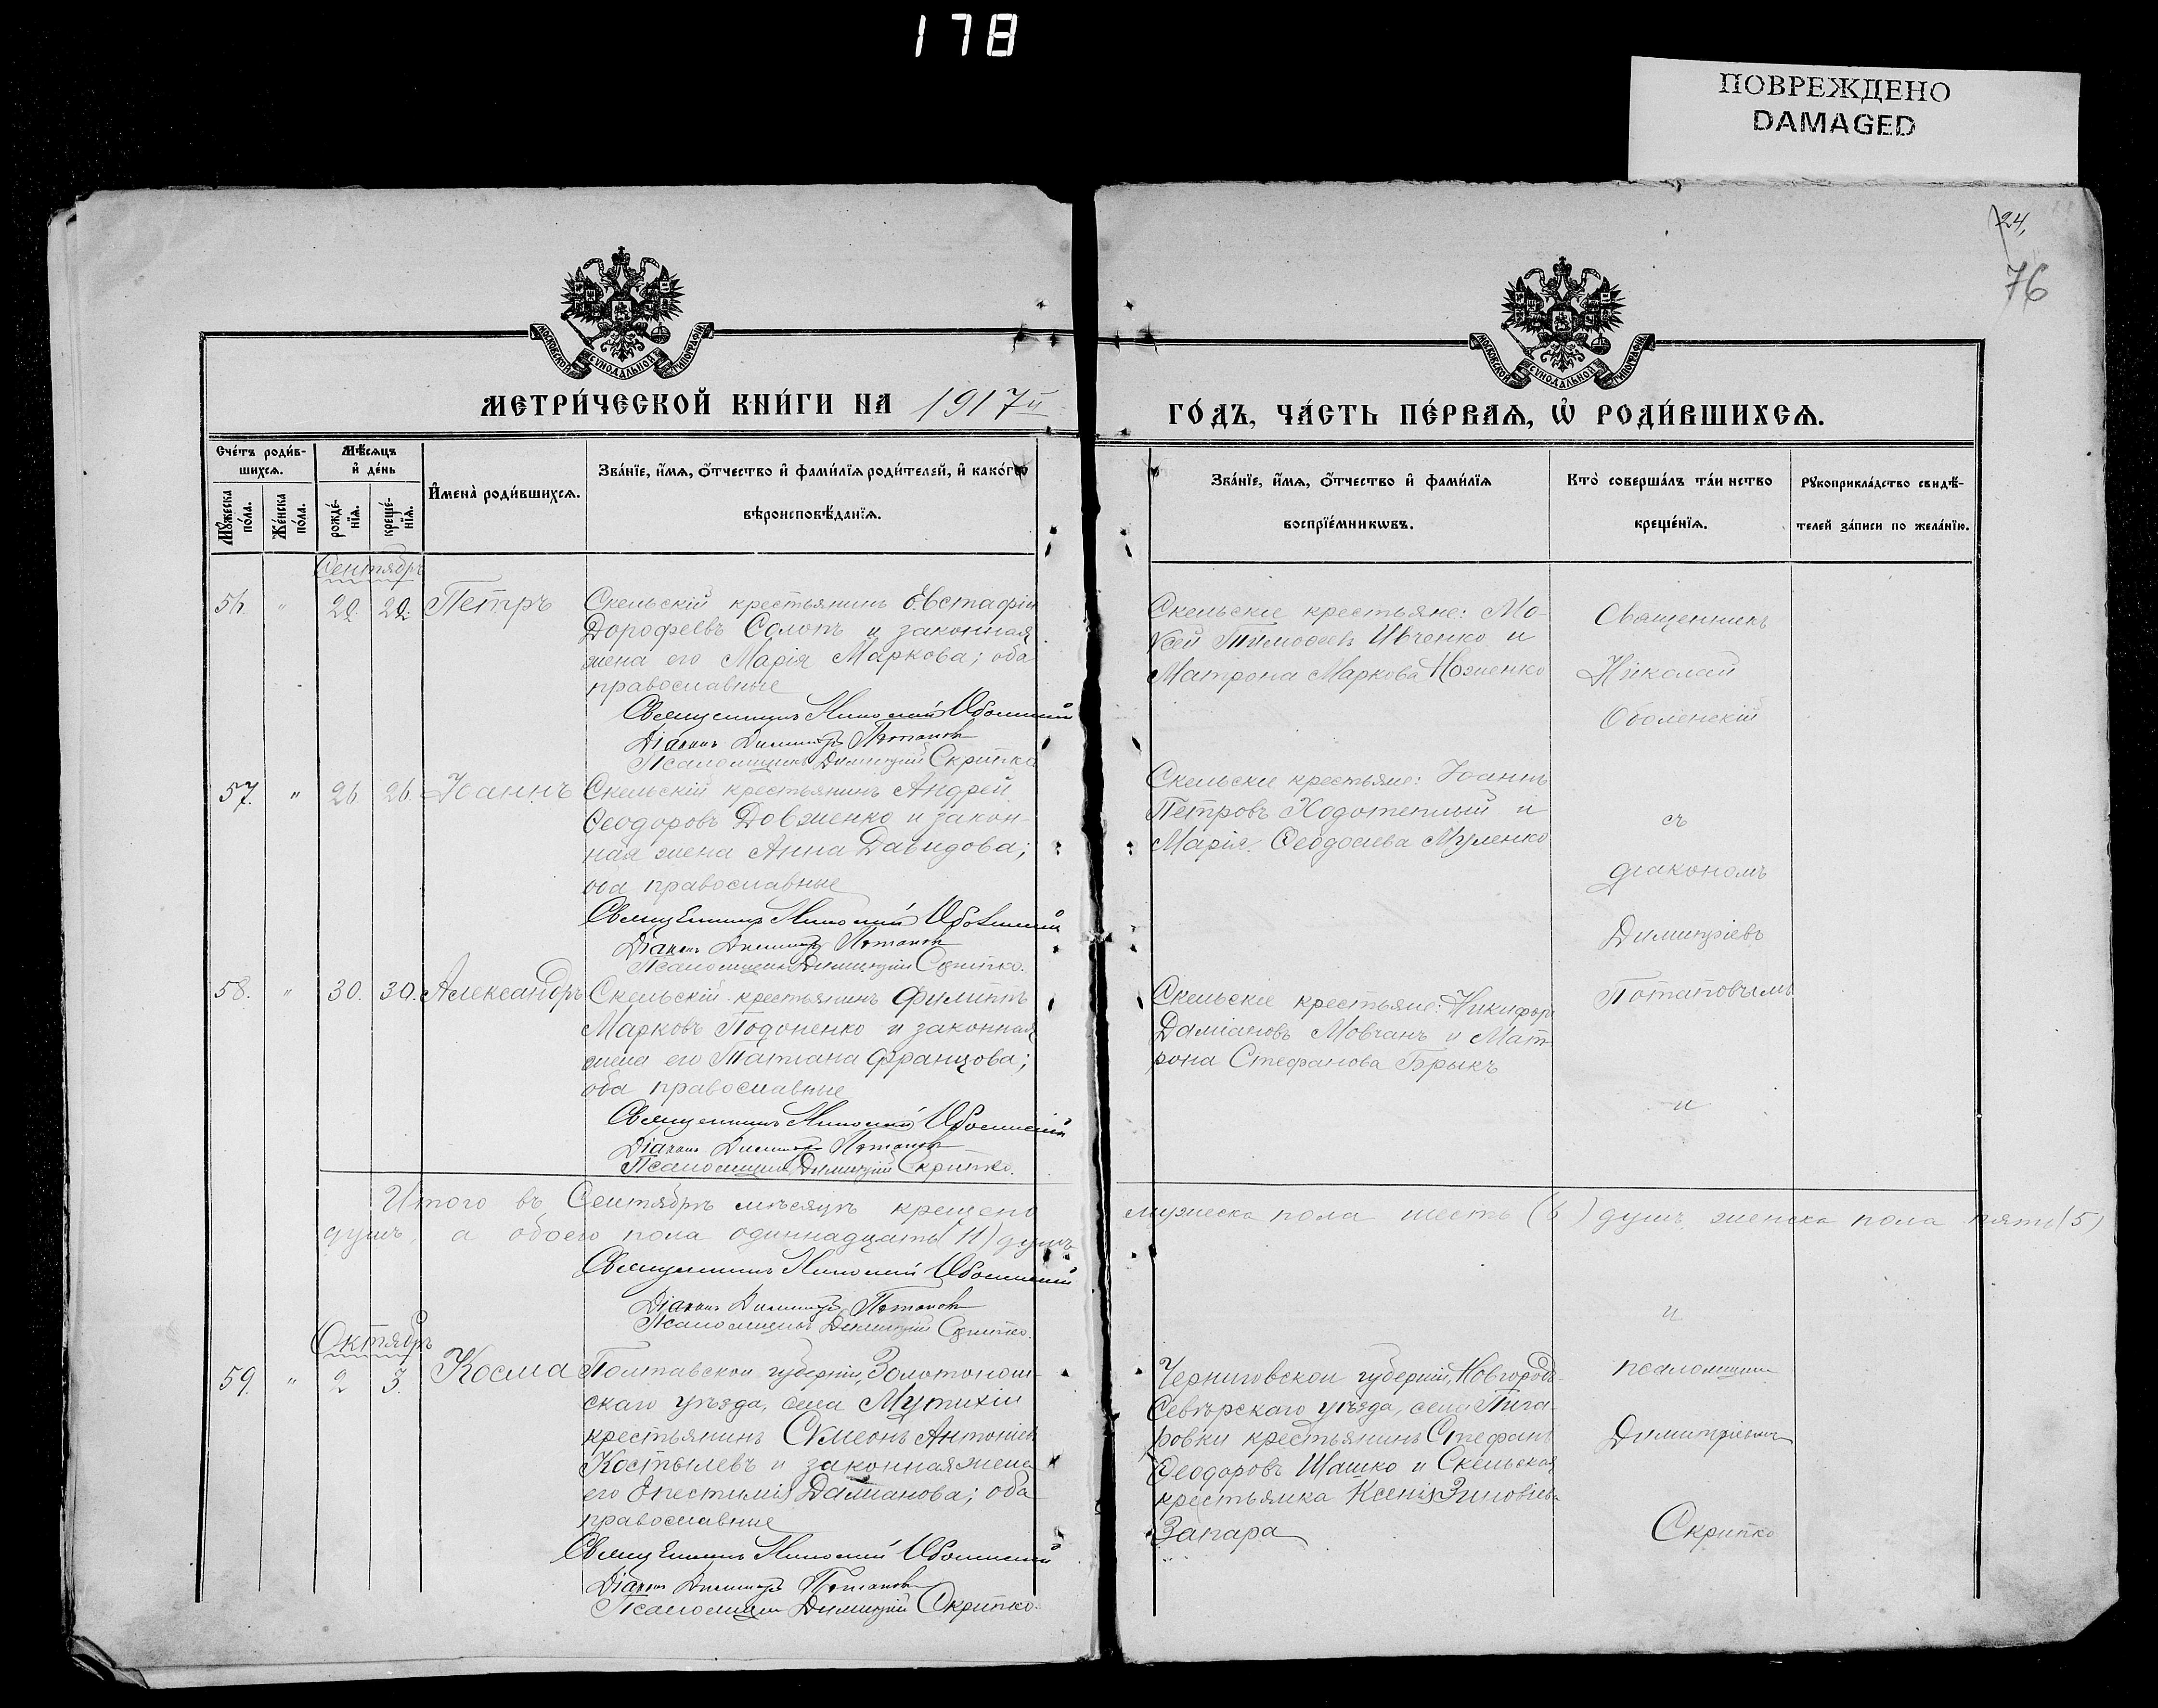 178
ПОВРЕЖДЕНО
DAMAGED
24,
76
МОСКОВСКОЙ СѴНОДАЛЬНОЙ ТИПОГРАФІИ
МОСКОВСКОЙ СѴНОДАЛЬНОЙ ТИПОГРАФІИ
МЕТРИ́ЧЕСКОЙ КНИ́ГИ НА 1917й
ГО́ДЪ, ЧА́СТЬ ПЕ́РВАѦ, Ѽ РОДИ́ВШИХСѦ.
Сче́тъ роди́в-
шихсѧ.
Мѣ́сѧцъ
и҆ де́нь
Мꙋ́жеска по́ла.
Же́нска по́ла.
рожде́-
нїѧ.
креще́-
нїѧ.
И҆мена̀ роди́вшихсѧ.
Зва́нїе, и҆́мѧ, ѻ҆́тчество и҆ фами́лїѧ роди́телей, и҆ како́гѡ
вѣроисповѣ́данїѧ.
Зва́нїе, и҆́мѧ, ѻ҆́тчество и҆ фами́лїѧ
воспрїе́мникѡвъ.
Кто̀ соверша́лъ та́инство
креще́нїѧ.
Рꙋкоприкла́дство свидѣ́-
телей за́писи по жела́нїю.
Сентябрь
56. " 20. 20. Петръ
Скельскій крестьянинъ Евстафій
Дорофеевъ Солопъ и законная
жена его Марія Маркова; оба
православные
Священникъ Николай Оболенскій
Діаконъ Димитрій Потаповъ
Псаломщикъ Димитрій Скрипко
Скельскіе крестьяне: Мо-
ѵсей Тимоѳеевъ Ивченко и
Матрона Маркова Ноженко
Священникъ
Николай
Оболенскій
57. " 26 26. Іоаннъ
Скельскій крестьянинъ Андрей
Ѳеодоровъ Довженко и закон-
ная жена Анна Давидова;
оба православные
Священникъ Николай Оболенскій
Діаконъ Димитрій Потаповъ
Псаломщикъ Димитрій Скрипко.
Скельскіе крестьяне: Іоаннъ
Петровъ Ходотепный и
Марія Ѳеодосіева Муленко
съ
діакономъ
Димитріевъ
Потаповымъ
58. " 30. 30. Александръ
Скельскій крестьянинъ Филиппъ
Марковъ Подоненко и законная
жена его Татіана Францова;
оба православные
Священникъ Николай Оболенскій
Діаконъ Димитрій Потаповъ
Псаломщикъ Димитрій Скрипко.
Скельскіе крестьяне: Никифоръ
Даміановъ Мовчанъ и Мат-
рона Стефанова Брыкъ
и
Итого въ Сентябрѣ мѣсяцѣ крещено мужеска пола шесть (6) душъ, женска пола пять (5)
душъ, а обоего пола одиннадцать (11) душъ
Священникъ Николай Оболенскій
Діаконъ Димитрій Потаповъ
Псаломщикъ Димитрій Скрипко.
и
Октябрь
59. " 2 3. Косма
Полтавской губерніи, Золотонош-
скаго уѣзда, села Мутихіи
крестьянинъ Сѵмеонъ Антоніевъ
Костылевъ и законная жена
его Епестимія Даміанова; оба
православные
Священникъ Николай Оболенскій
Діаконъ Димитрій Потаповъ
Псаломщикъ Димитрій Скрипко.
Черниговской губерніи, Новгородъ-
Сѣверскаго уѣзда, села Пига-
ровки крестьянинъ Стефанъ
Ѳеодоровъ Шашко и Скельская
крестьянка Ксенія Зиновіева
Запара
псаломщикъ
Димитріемъ
Скрипко